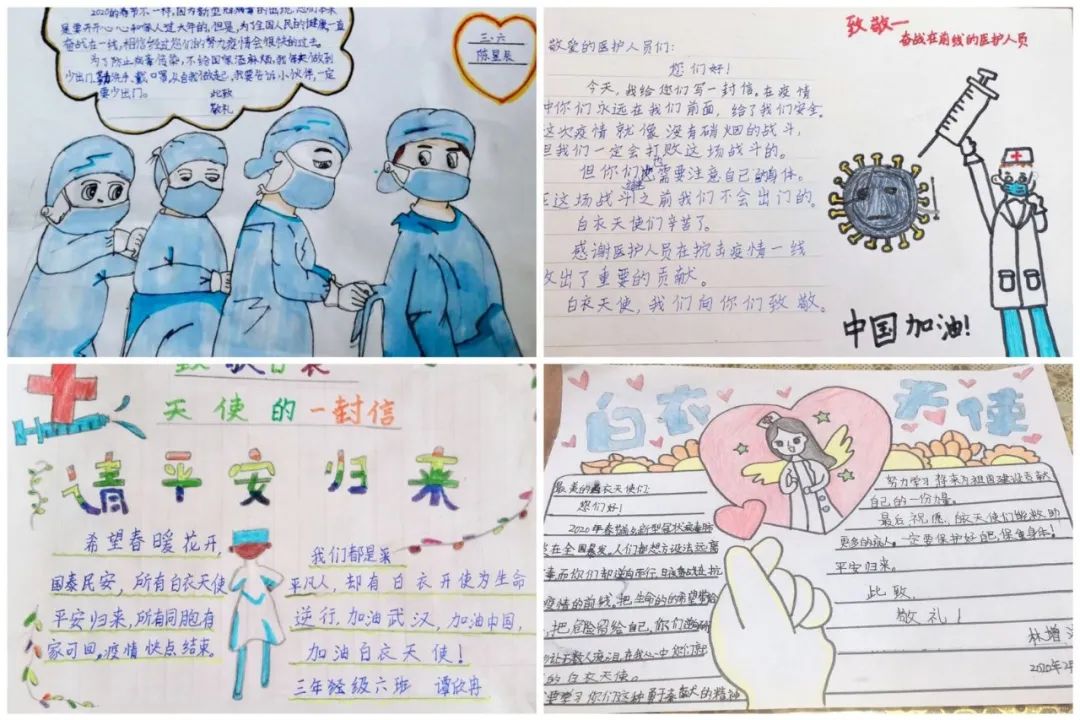 2020的春节不一样,因为新型冠状病毒的出现,您们本来
是要开开心心和家人过大年的。但是,为了全国人民的健康,一直
奋战在一线,相信经过您们的努力疫情会很快的过去。
为了防止病毒传染,不给国家添麻烦,我保证做到
少出门,勤洗手,戴口罩,从自我做起,我要告诉小伙伴,一定
要少出门。
此致
敬礼
三、六
陈昱辰
致敬一
奋战在前线的医护人员
敬爱的医护人员们:
您们好!
今天,我给您们写一封信。在疫情
中你们永远在我们前面,给了我们安全。
这次疫情就像没有硝烟的战斗,
但我们一定会打败这场战斗的。
但你们也需要注意自己的身体。
在这场战斗之前我们不会出门的。
白衣天使们辛苦了。
感谢医护人员在抗击疫情一线
做出了重要的贡献。
白衣天使,我们向你们致敬。
中国加油!
致敬白衣
天使的一封信
请平安归来
希望春暖花开,
国泰民安,所有白衣天使
平安归来,所有同胞有
家可回。疫情快点结束。
我们都是
平凡人,却有白衣天使为生命
逆行,加油武汉,加油中国,
加油白衣天使!
三年经级六班 谭欣冉
白衣天使
最美的白衣天使们:
您们好!
2020年春节的新型冠状病毒肺
炎在全国暴发,人们都想方设法远离
病毒而你们却逆向而行,日夜奋战在抗
疫情的前线。把生命的希望留给
把危险留给自己,你们逆
让无数人流泪,在我心中你们是
的白衣天使。
要学习你们这种勇于奉献的精神
努力学习将来为祖国建设贡献
自己的一份力量。
最后祝愿,白衣天使们能救助
更多的病人。一定要保护好自己,保重身体!
平安归来。
此致
敬礼!
林增
2020年2月